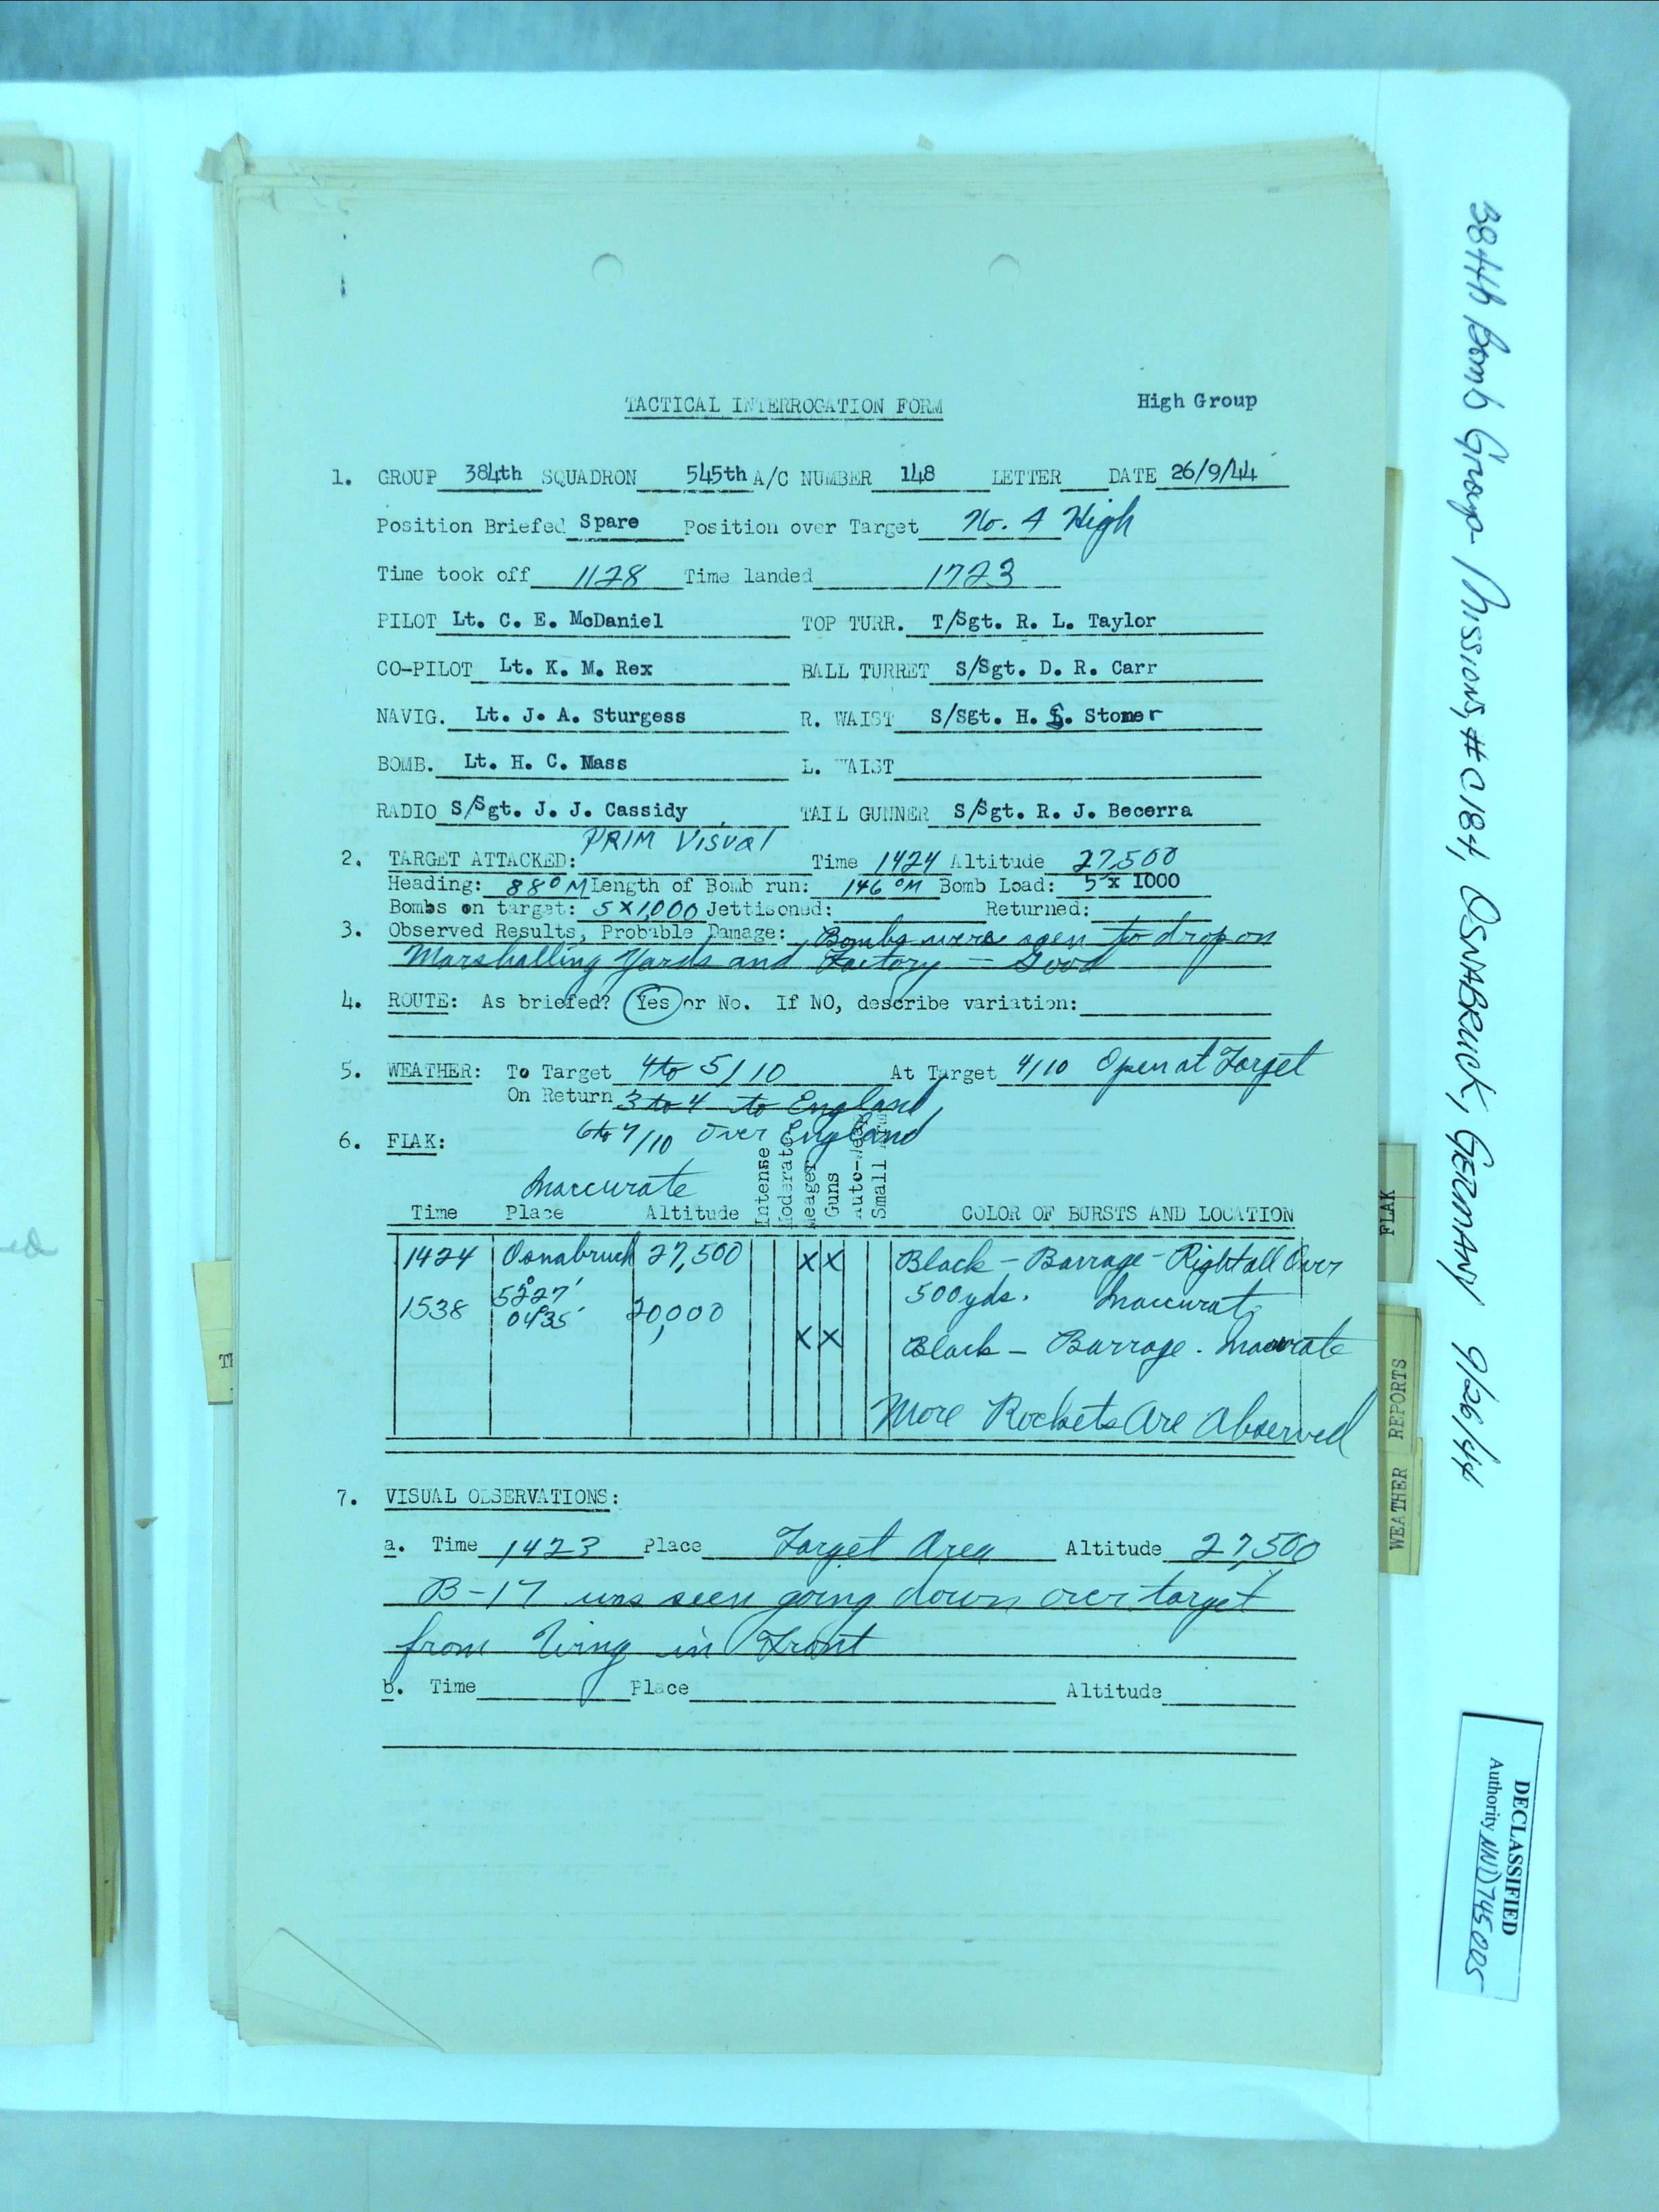 TACTICAL INTERROGATION FORM High Group
1. GROUP 384th SQUADRON 545th A/C NUMBER 148 LETTER DATE 26/9/44
Position Briefed Spare Position over Target No. 4 High
Time took off 1128 Time landed 1723
PILOT Lt. C. E. McDaniel TOP TURR. T/Sgt. R. L. Taylor
CO-PILOT Lt. K. M. Rex BALL TURRET S/Sgt. D. R. Carr
NAVIG. Lt. J. A. Sturgess R. WAIST S/Sgt. H. Stomer
BOMB. Lt. H. C. Mass L. WAIST
RADIO S/Sgt. J. J. Cassidy TAIL GUNNER S/Sgt. R. J. Becerra
PRIM VISUAL
2. TARGET ATTACKED: Time 1424 Altitude 27,500
Heading: 88° M Length of Bomb run: 146 °M Bomb Load: 5 x 1000
Bombs on target: 5 X 1,000 Jettisoned: Returned:
3. Observed Results, Probable Damage: Bombs were seen to drop on
Marshalling Yards and Factory - Good
4. ROUTE: As briefed? Yes or No. If NO, describe variation:
5. WEATHER: To Target 4 to 5/10 At Target 4/10 Open at Target
On Return 3 to 4 to England
6 to 7/10 over England
6. FLAK:
Inaccurate
Time Place Altitude Intense Moderate Meager Guns Auto-Weap Small COLOR OF BURSTS AND LOCATION
1424 Osnabruck 27,500 X X Black - Barrage - Right all Over
500 yds. Inaccurate
1538 52°27' 04°35' 20,000
X X Black - Barrage - Inaccurate
More Rockets Are Observed
7. VISUAL OBSERVATIONS:
a. Time 1423 Place Target Area Altitude 27,500
B-17 was seen going down over target
from Wing in Front
b. Time Place Altitude
384th Bomb Group Missions, # 184, OSNABRUCK, GERMANY 9/26/44
FLAK
WEATHER REPORTS
DECLASSIFIED
Authority NND745005